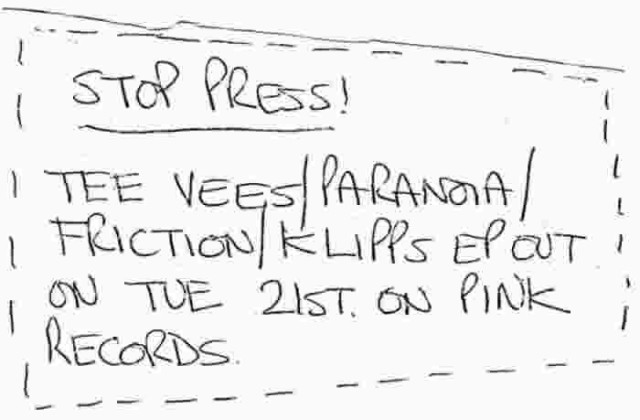 STOP PRESS!
TEE VEES/PARANOIA/
FRICTION/KLIPPS EP OUT
ON TUE 21ST. ON PINK
RECORDS.